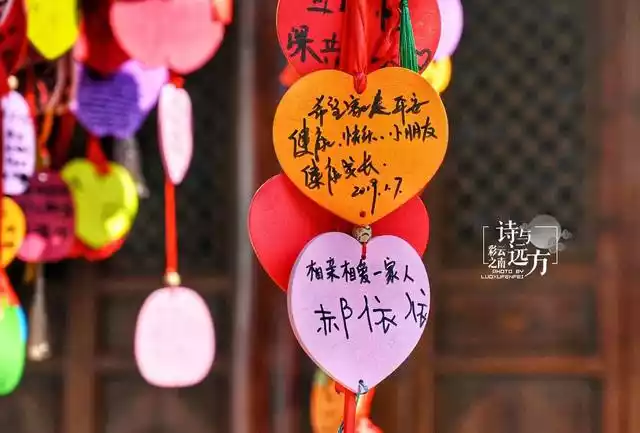 梁共
希望家庭平安
健康、快乐、小朋友
健康成长.
2019.1.7
相亲相爱一家人
郝依依
诗与远方
彩云之南
PHOTO BY
LUOXUFENFEI